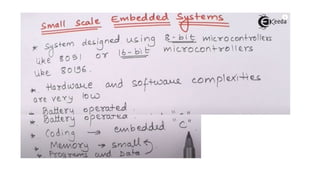 Small Scale Embedded Systems
Ekeeda
* System designed using 8-bit microcontrollers
like 8031 or 16-bit microcontrollers
like 80196.
* Hardware and software complexities
are very low
* Battery operated
* Battery operated
* Coding → embedded "C".
* Memory → small
* Programs and Data